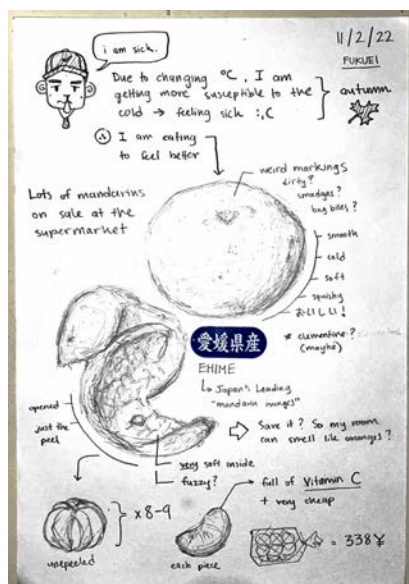 i am sick.
11/2/22
FUKUI
Due to changing °C, I am
getting more susceptible to the
cold → feeling sick :,C
autumn
I am eating
to feel better
Lots of mandarins
on sale at the
supermarket
weird markings
dirty?
bug bites?
smooth
cold
soft
squishy
おいしい!
* clementine?
(maybe)
愛媛県産
EHIME
↳ Japan's Leading
"mandarin oranges"
opened
just the
peel
Save it? So my room
can smell like oranges?
very soft inside
fuzzy?
full of Vitamin C
+ very cheap
} x 8-9
unpeeled
each piece
= 338¥